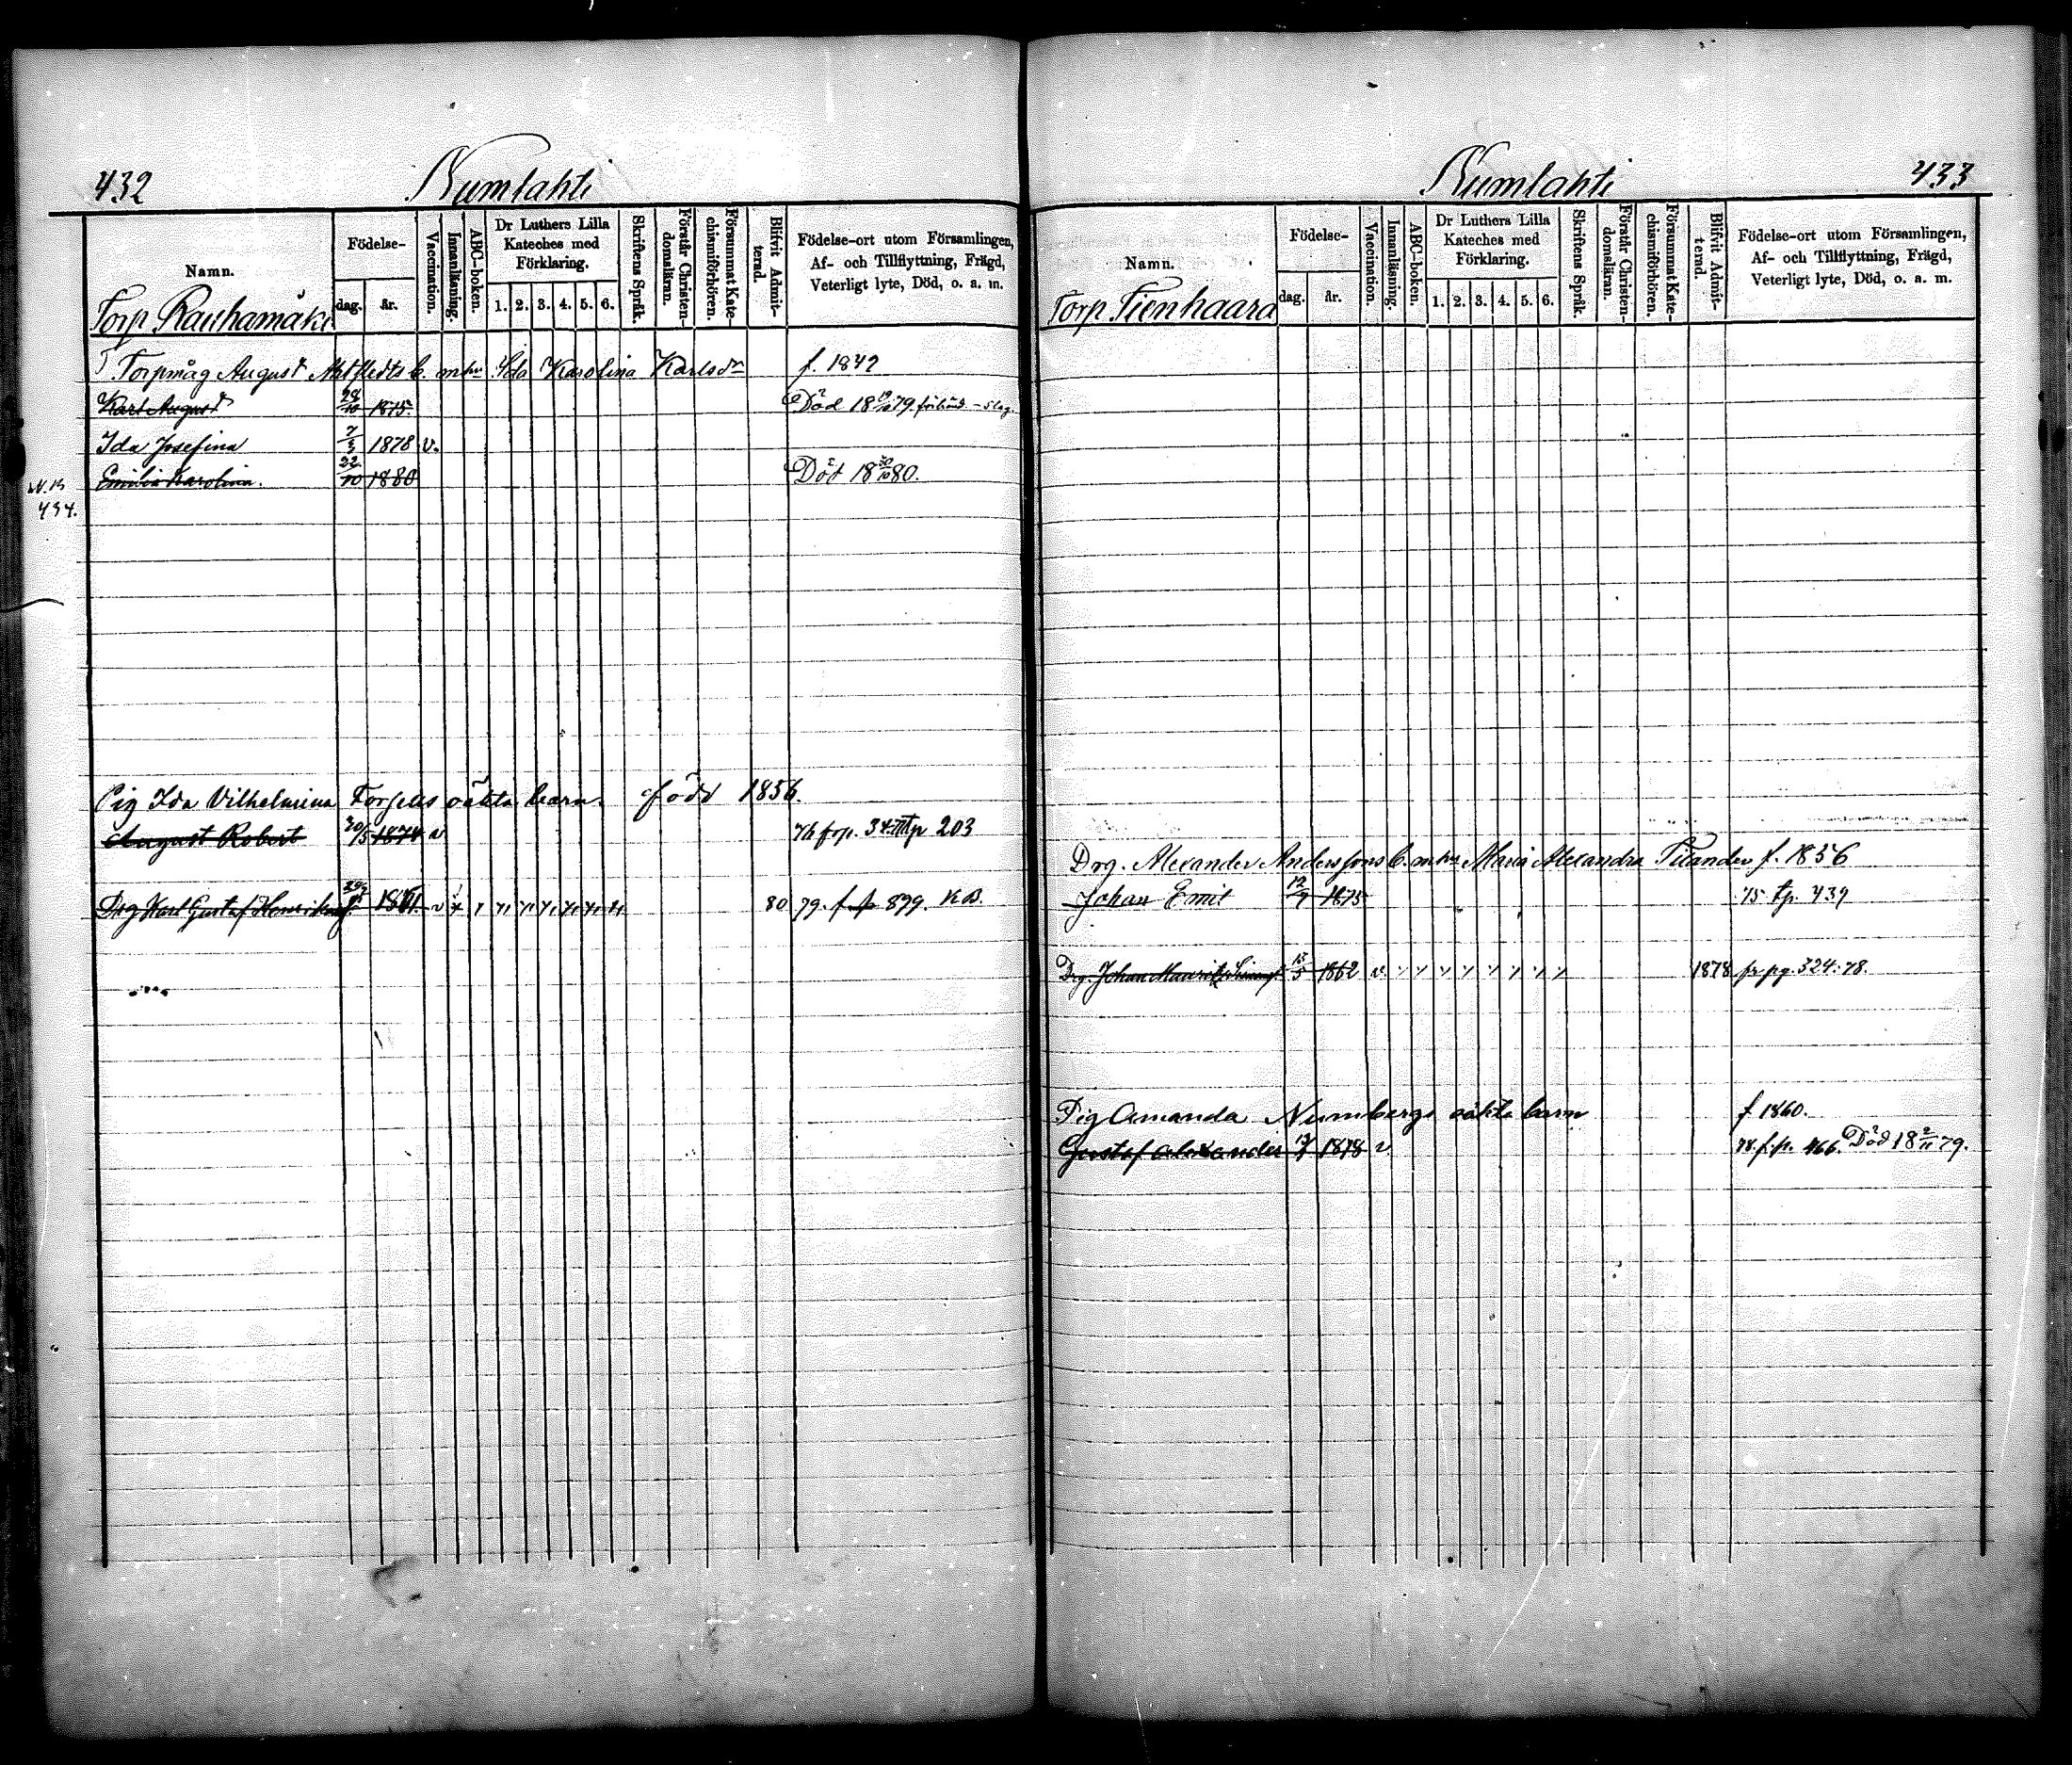 432 Numlahti
Namn.
Födelse-
dag.
år.
Vaccination.
Innanläsning.
ABC-boken.
Dr Luthers Lilla
Kateches med
Förklaring.
1. 2. 3. 4. 5. 6.
Skriftens Språk.
Förstår Christen-
domsläran.
Försummat Kate-
chismiförhören.
Blifvit Admit-
terad.
Födelse-ort utom Församlingen,
Af- och Tillflyttning, Frägd,
Veterligt lyte, Död, o. a. m.
Torp Rauhamäki
Torpmåg August b. m hu Ida Karolina Karlsdr f. 1842
Karl August 28/10 1875. Död 18 79.
Ida Josefina 7/3 1878 v.
Emilia Karolina. 22/10 1880 Död 18 30/10 80.
434.
Pig Ida Vilhelmina Forsells oäkta barn. född 1856.
August Robert 30/5 1874 v 203
Drg Karl Gustaf 1861. v 80 79. f p 899. K.B.
Numlahti 433
Namn.
Födelse-
dag.
år.
Vaccination.
Innanläsning.
ABC-boken.
Dr Luthers Lilla
Kateches med
Förklaring.
1. 2. 3. 4. 5. 6.
Skriftens Språk.
Förstår Christen-
domsläran.
Försummat Kate-
chismiförhören.
Blifvit Admit-
terad.
Födelse-ort utom Församlingen,
Af- och Tillflyttning, Frägd,
Veterligt lyte, Död, o. a. m.
Torp Tienhaara
Drg. Alexander Anderssons b. m hu Maria Alexandra Tilander f. 1856
Johan Emil 12/9 1875 75 tp. 439
Drg. Johan Mauritz 13/5 1862 v. 1878 fr pg. 324:78.
Pig Amanda Numbergs oäkta barn f 1860.
Gustaf Alexander 1878 v 78. f. p. 466. Död 18 2/11 79.